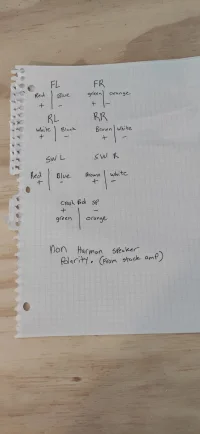 FL FR
Red | Blue green | orange
+ - + -
RL RR
white | Black Brown | white
+ - + -
SW L SW R
Red | Blue Brown | white
+ - + -
SP
+ -
green | orange
Non Harman speaker
Polarity. (From stock amp)